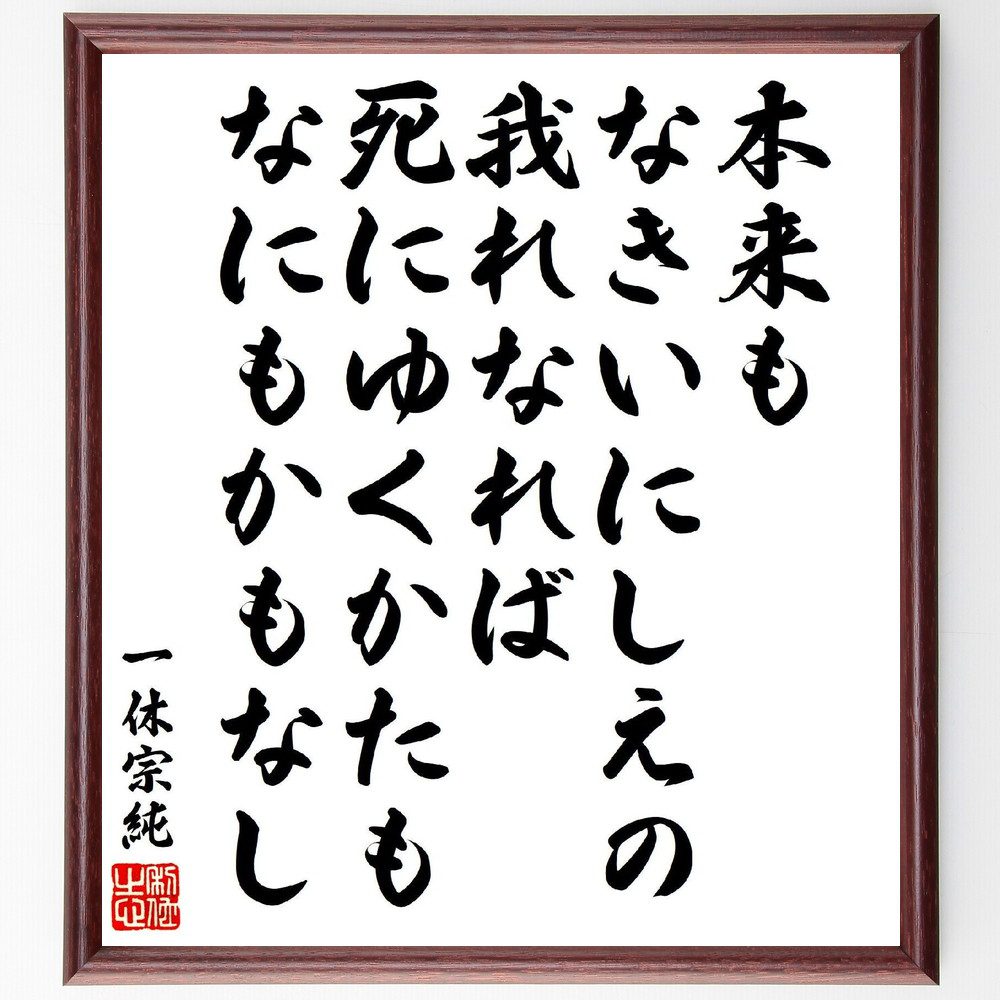 本来も
なきいにしえの
我れなれば
死にゆくかたも
なにもかもなし
一休宗純